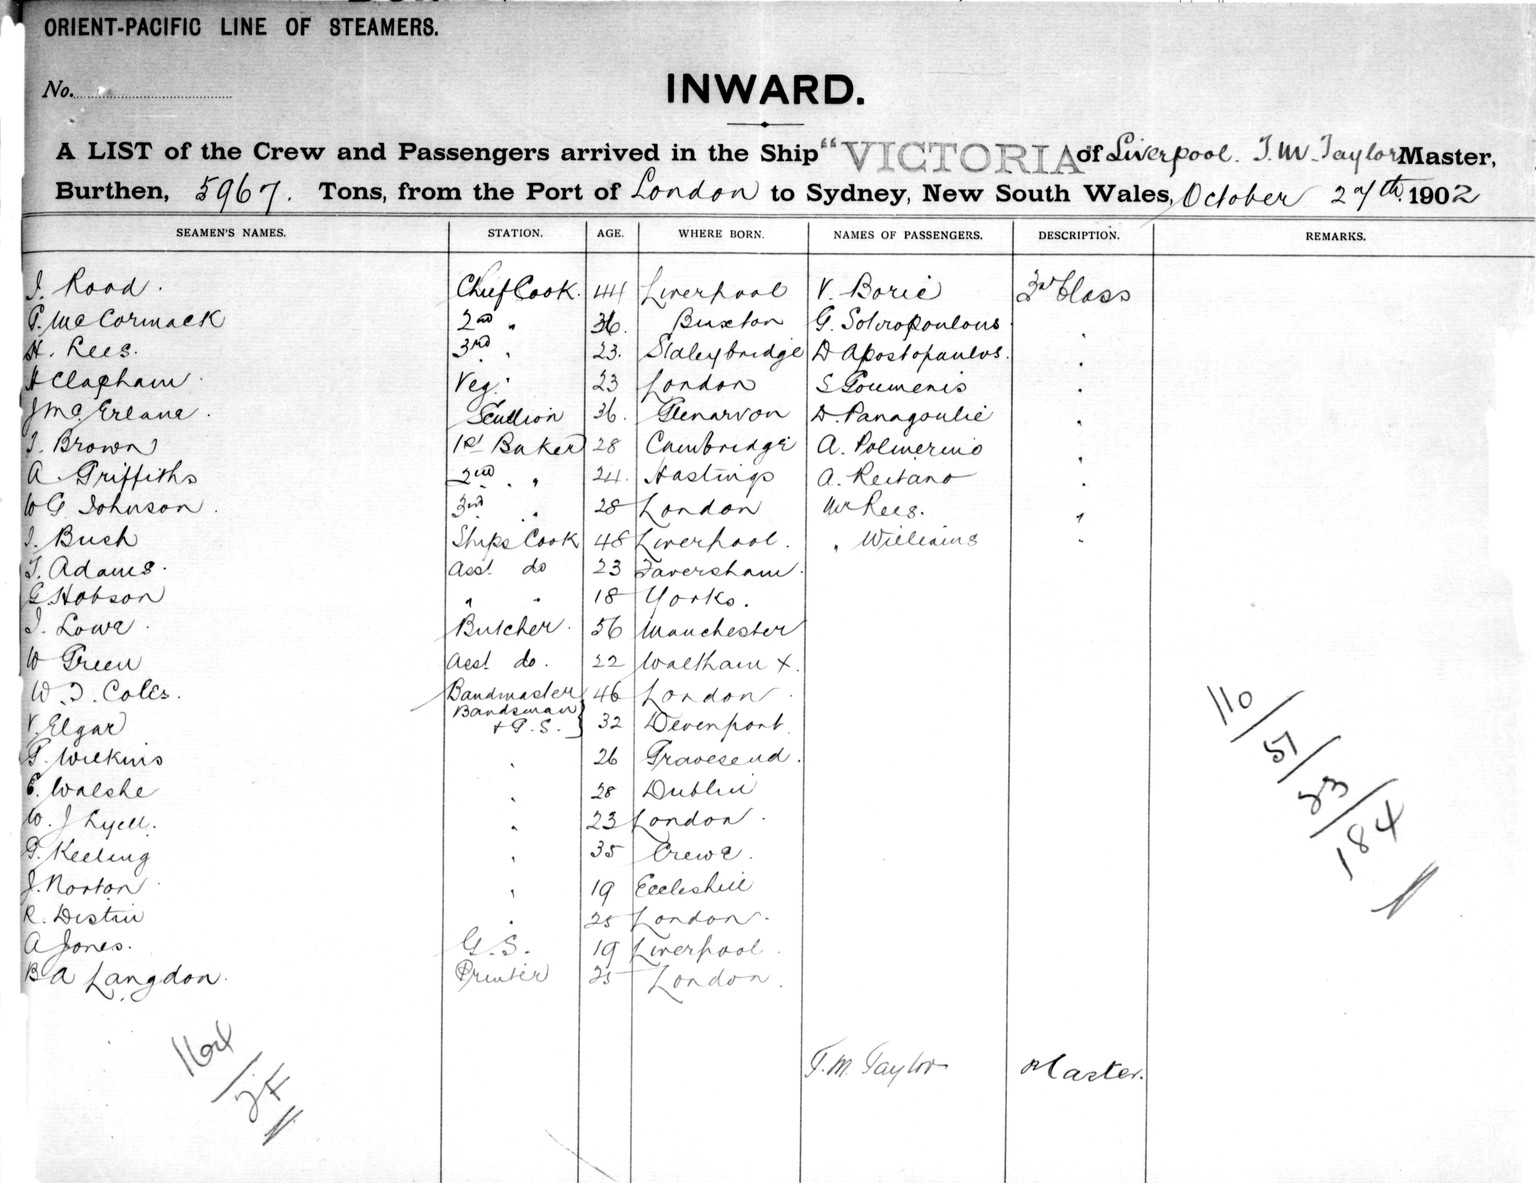 ORIENT-PACIFIC LINE OF STEAMERS.
No.
INWARD.
A LIST of the Crew and Passengers arrived in the Ship "VICTORIA" of Liverpool. T. M. Taylor Master,
Burthen, 5967. Tons, from the Port of London to Sydney, New South Wales, October 27th 1902
SEAMEN'S NAMES. STATION. AGE. WHERE BORN. NAMES OF PASSENGERS. DESCRIPTION. REMARKS.
J. Rood. Chief Cook. 44 Liverpool V. Boric 3rd Class
P. McCormack 2nd " 36. Buxton G. Sotiropoulous "
H. Lees. 3rd " 23. Staleybridge D Apostopoulos. "
H Clapham Veg. " 23 London S Goumenis "
J Mc Erlane. Scullion 36. Glenarvon D. Panagoulie "
J. Brown 1st Baker 28 Cambridge A. Polmerino "
A. Griffiths 2nd " " 24. Hastings A. Reitano "
W G. Johnson. 3rd " 28 London Mr Rees. "
J. Bush Ships Cook 48 Liverpool. " Williams "
T. Adams. Asst do 23 Faversham.
G. Hobson " " 18 Yorks.
J. Lowe. Butcher. 56 Manchester
W Green Asst do. 22 Waltham X.
W. J. Coles. Bandmaster 46 London.
V. Elgar Bandsman + G.S. } 32 Devenport.
P. Wilkins " 26 Gravesend.
E. Walshe " 28 Dublin
W. J Lyell. " 23 London.
G. Keeling " 35 Crewe.
J. Norton " 19 Eccleshill
R. Distin " 25 London.
A Jones. G.S. 19 Liverpool.
B A Langdon. Printer 25 London.
110/51/23/184
T. M. Taylor Master.
164/2F